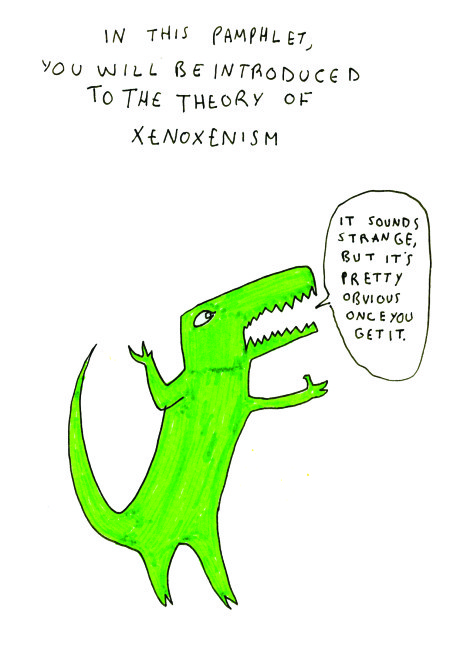 IN THIS PAMPHLET,
YOU WILL BE INTRODUCED
TO THE THEORY OF
XENOXENISM
IT SOUNDS
STRANGE,
BUT IT'S
PRETTY
OBVIOUS
ONCE YOU
GET IT.